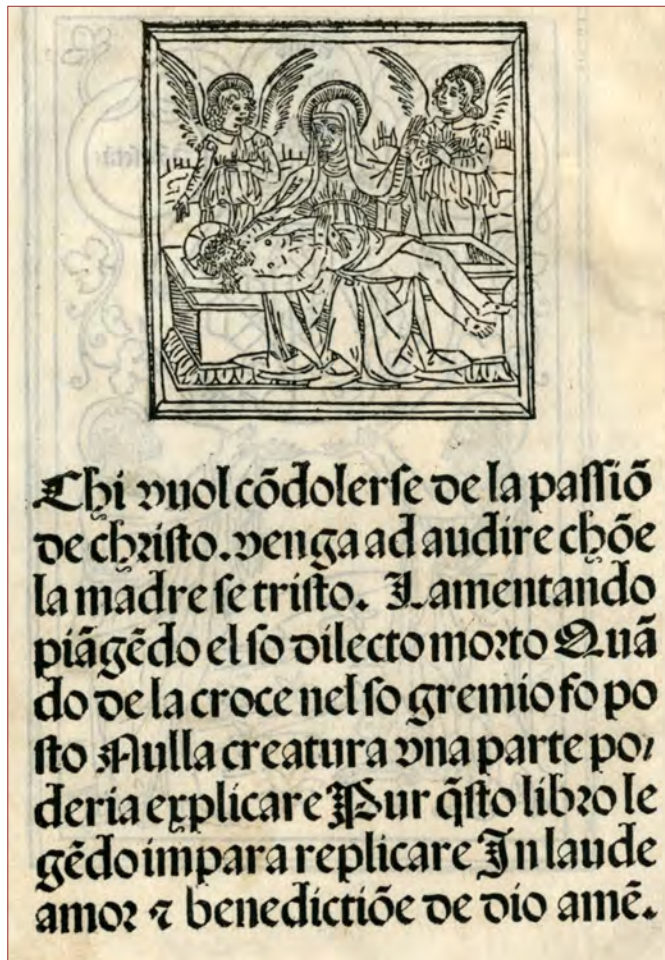 Chi vuol cõdolerse de la passiõ
de christo. venga ad audire chõe
la madre se tristo. Lamentando
piãgẽdo el so dilecto morto Quã
do de la croce nel so gremio fo po
sto Nulla creatura vna parte po/
deria explicare Pur q̃sto libro le
gẽdo impara replicare In laude
amor ⁊ benedictiõe de dio amẽ.